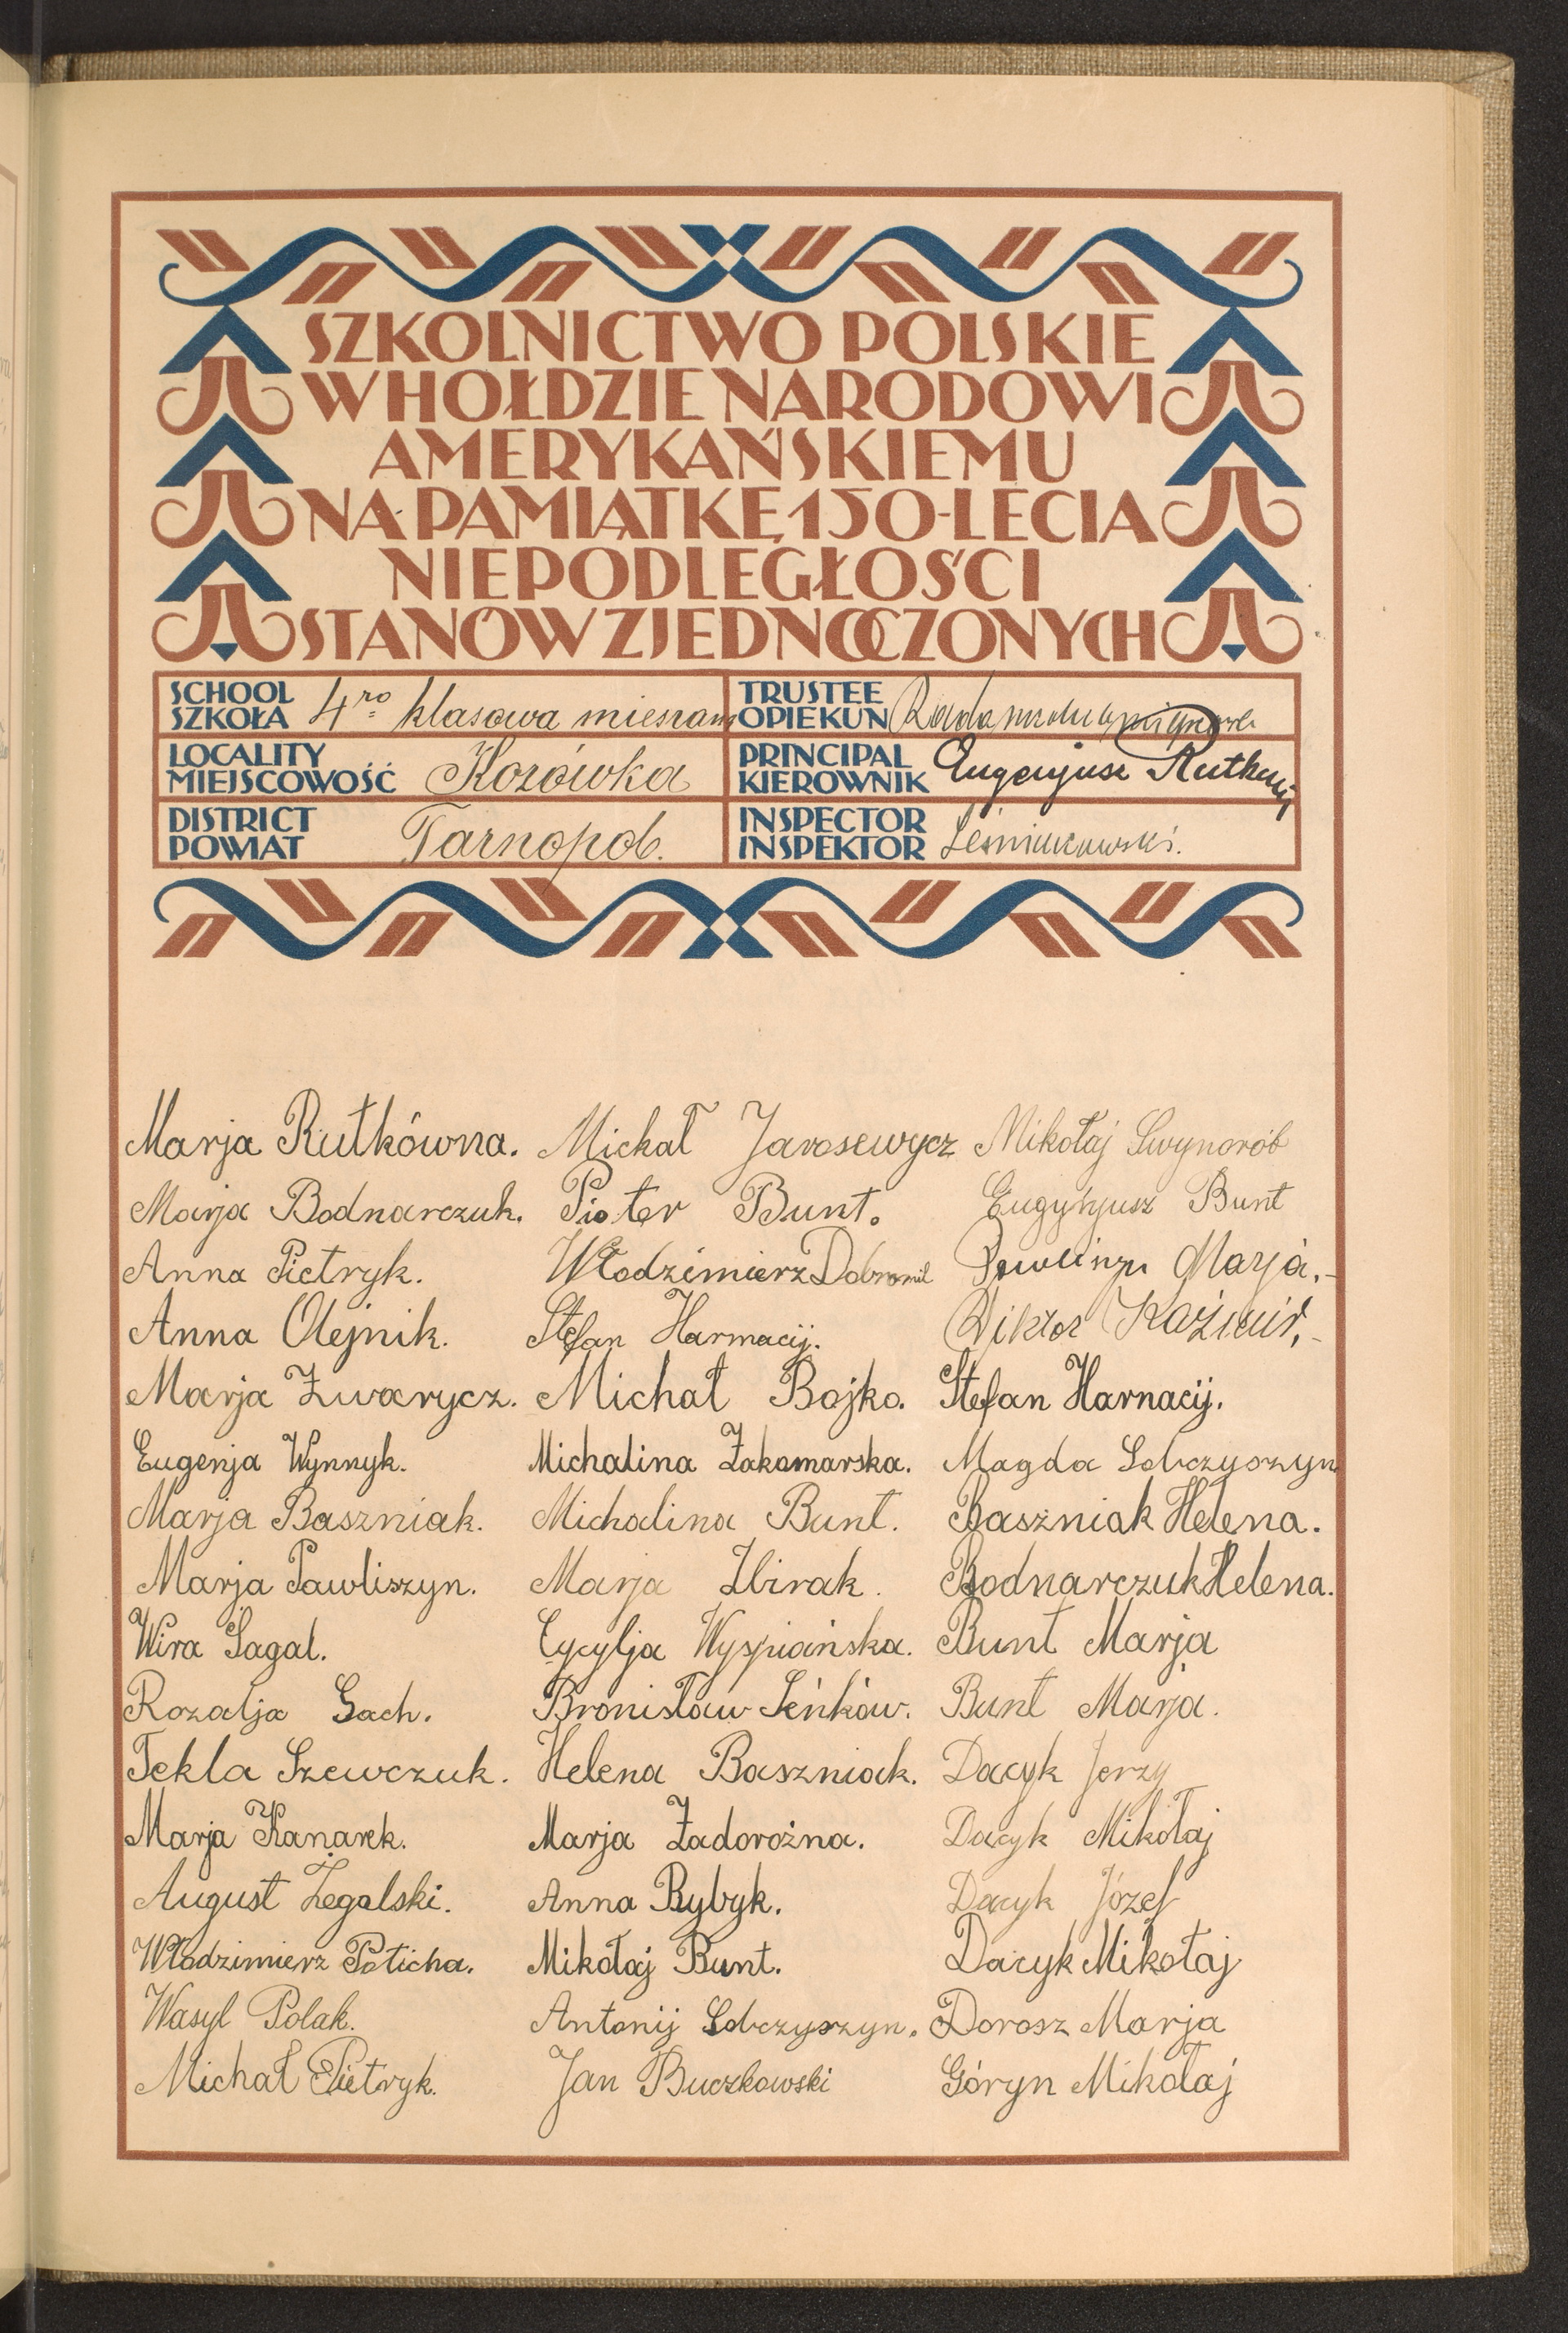 SZKOLNICTWO POLSKIE
W HOŁDZIE NARODOWI
AMERYKAŃSKIEMU
NA PAMIĄTKĘ 150-LECIA
NIEPODLEGŁOŚCI
STANÓW ZJEDNOCZONYCH
SCHOOL
SZKOŁA 4ro klasowa mieszana
TRUSTEE
OPIEKUN Rada szkolna miejscowa
LOCALITY
MIEJSCOWOŚĆ Kozówka
PRINCIPAL
KIEROWNIK Eugenjusz
DISTRICT
POWIAT Tarnopol.
INSPECTOR
INSPEKTOR
Marja Rutkówna.
Marja Bodnarczuk.
Anna Pietryk.
Anna Olejnik.
Marja Zwarycz.
Eugenja Wynnyk.
Marja Baszniak.
Marja Pawliszyn.
Wira Sagal.
Rozalja Gach.
Tekla Szewczuk.
Marja Kanarek.
August Zegalski.
Włodzimierz Poticha.
Wasyl Polak.
Michał Pietryk.
Michał Jarosewycz
Pioter Bunt.
Włodzimierz Dobromil
Stefan Harmacij.
Michał Bojko.
Michalina Zakamarska.
Michalina Bunt.
Marja Zbirak.
Cycylja Wyspiańska.
Bronisław Seńków.
Helena Baszniak.
Marja Zadorożna.
Anna Rybyk.
Mikołaj Bunt.
Antonij Sobczyszyn.
Jan Buczkowski
Mikołaj Swynorób
Eugynjusz Bunt
Marja.
Wiktor
Stefan Harnacij.
Magda Sobczyszyn
Baszniak Helena.
Bodnarczuk Helena.
Bunt Marja
Bunt Marja.
Dacyk Jerzy
Dacyk Mikołaj
Dacyk Józef
Dacyk Mikołaj
Dorosz Marja
Góryn Mikołaj